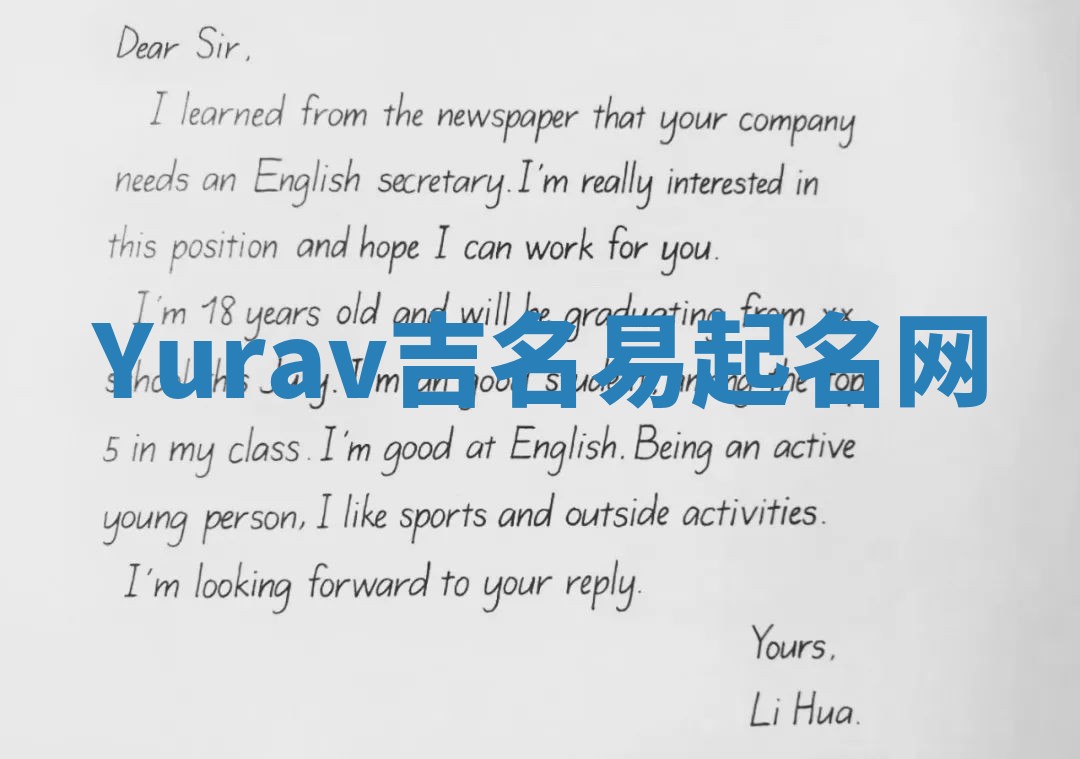 Dear Sir,
I learned from the newspaper that your company
needs an English secretary. I'm really interested in
this position and hope I can work for you.
I'm 18 years old and will be graduating from xx
Yurav吉名易起名网
school this July. I'm an good student, among the top
5 in my class. I'm good at English. Being an active
young person, I like sports and outside activities.
I'm looking forward to your reply.
Yours,
Li Hua.